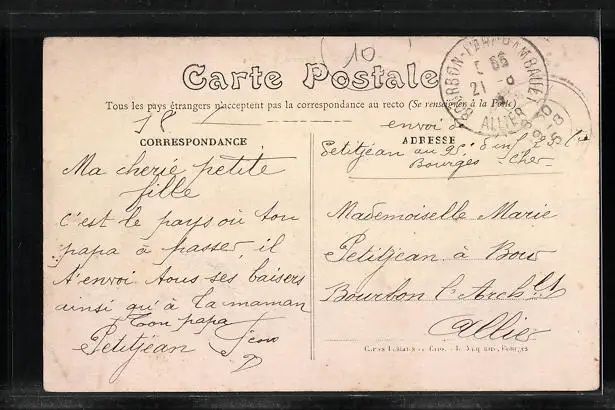 (10
Carte Postale
Tous les pays étrangers n'acceptent pas la correspondance au recto (Se renseigner à la Poste)
BOURBON-L'ARCHAMBAULT
21
ALLIER
CORRESPONDANCE
Ma cherie petite
fille
C'est le pays où ton
papa à passer, il
t'envoi tous ses baisers
ainsi qu'à ta maman
Ton papa
Petitjean
envoi de
ADRESSE
Petitjean au 95e d'inf
Bourges Cher
Mademoiselle Marie
Petitjean à Bour
Bourbon l'Archblt
Allier
Bourges